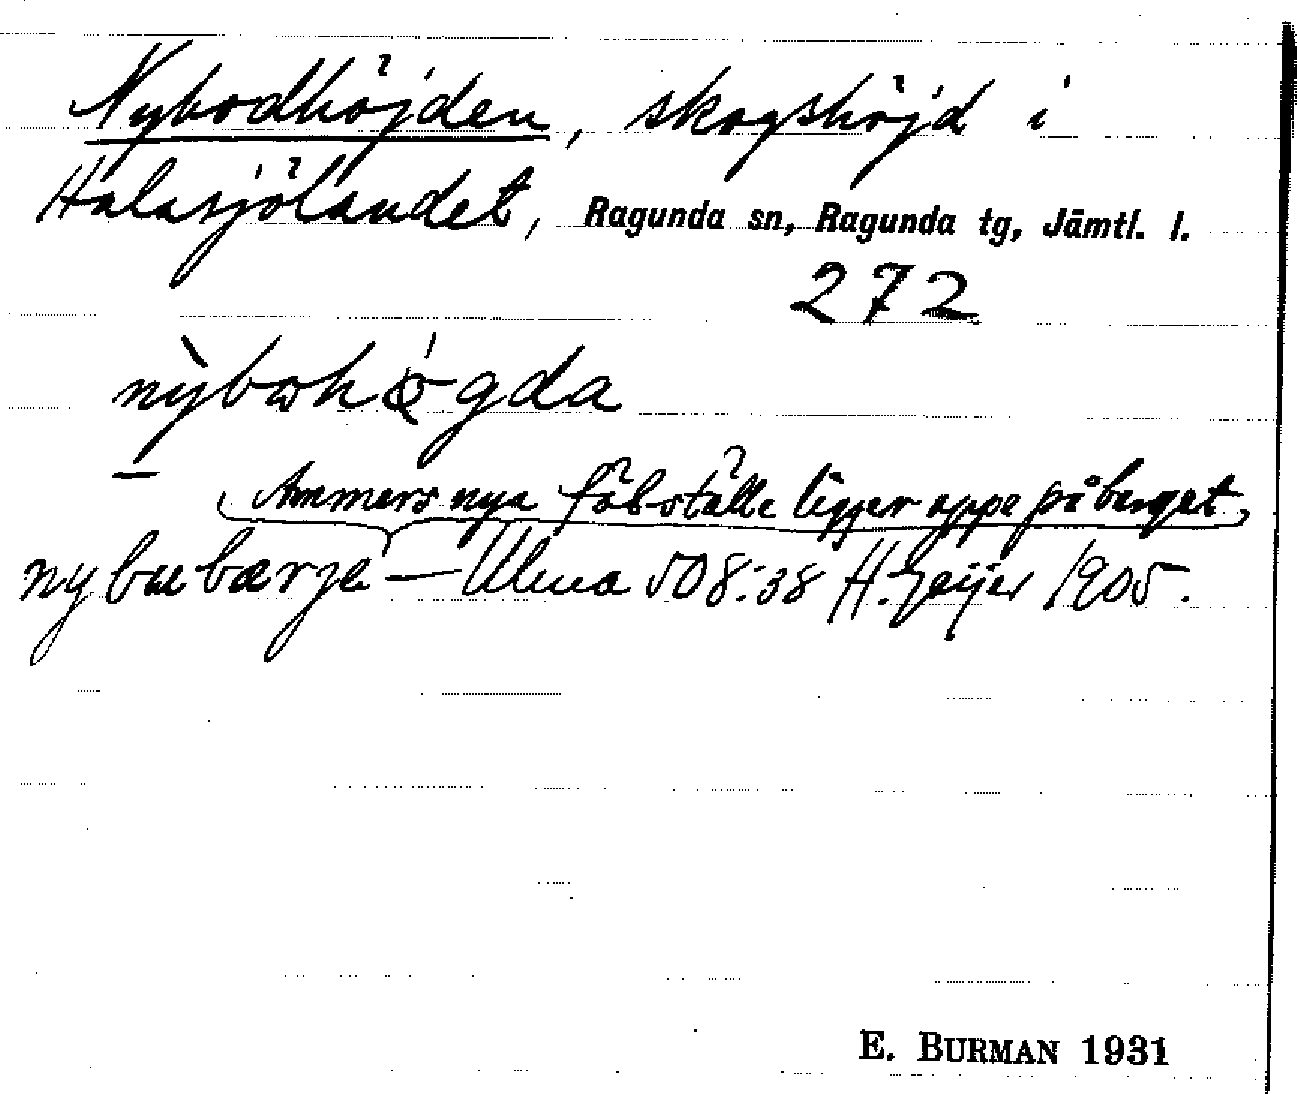 Nybodhöjden, skogshöjd i
Halasjölandet, Ragunda sn, Ragunda tg, Jämtl. l.
272
nỳbωhǿgda
—
(Ammers nya fäbställe ligger uppe på berget)
nybωbærje — Ulma 508:38 H. Geijer 1905.
E. BURMAN 1931